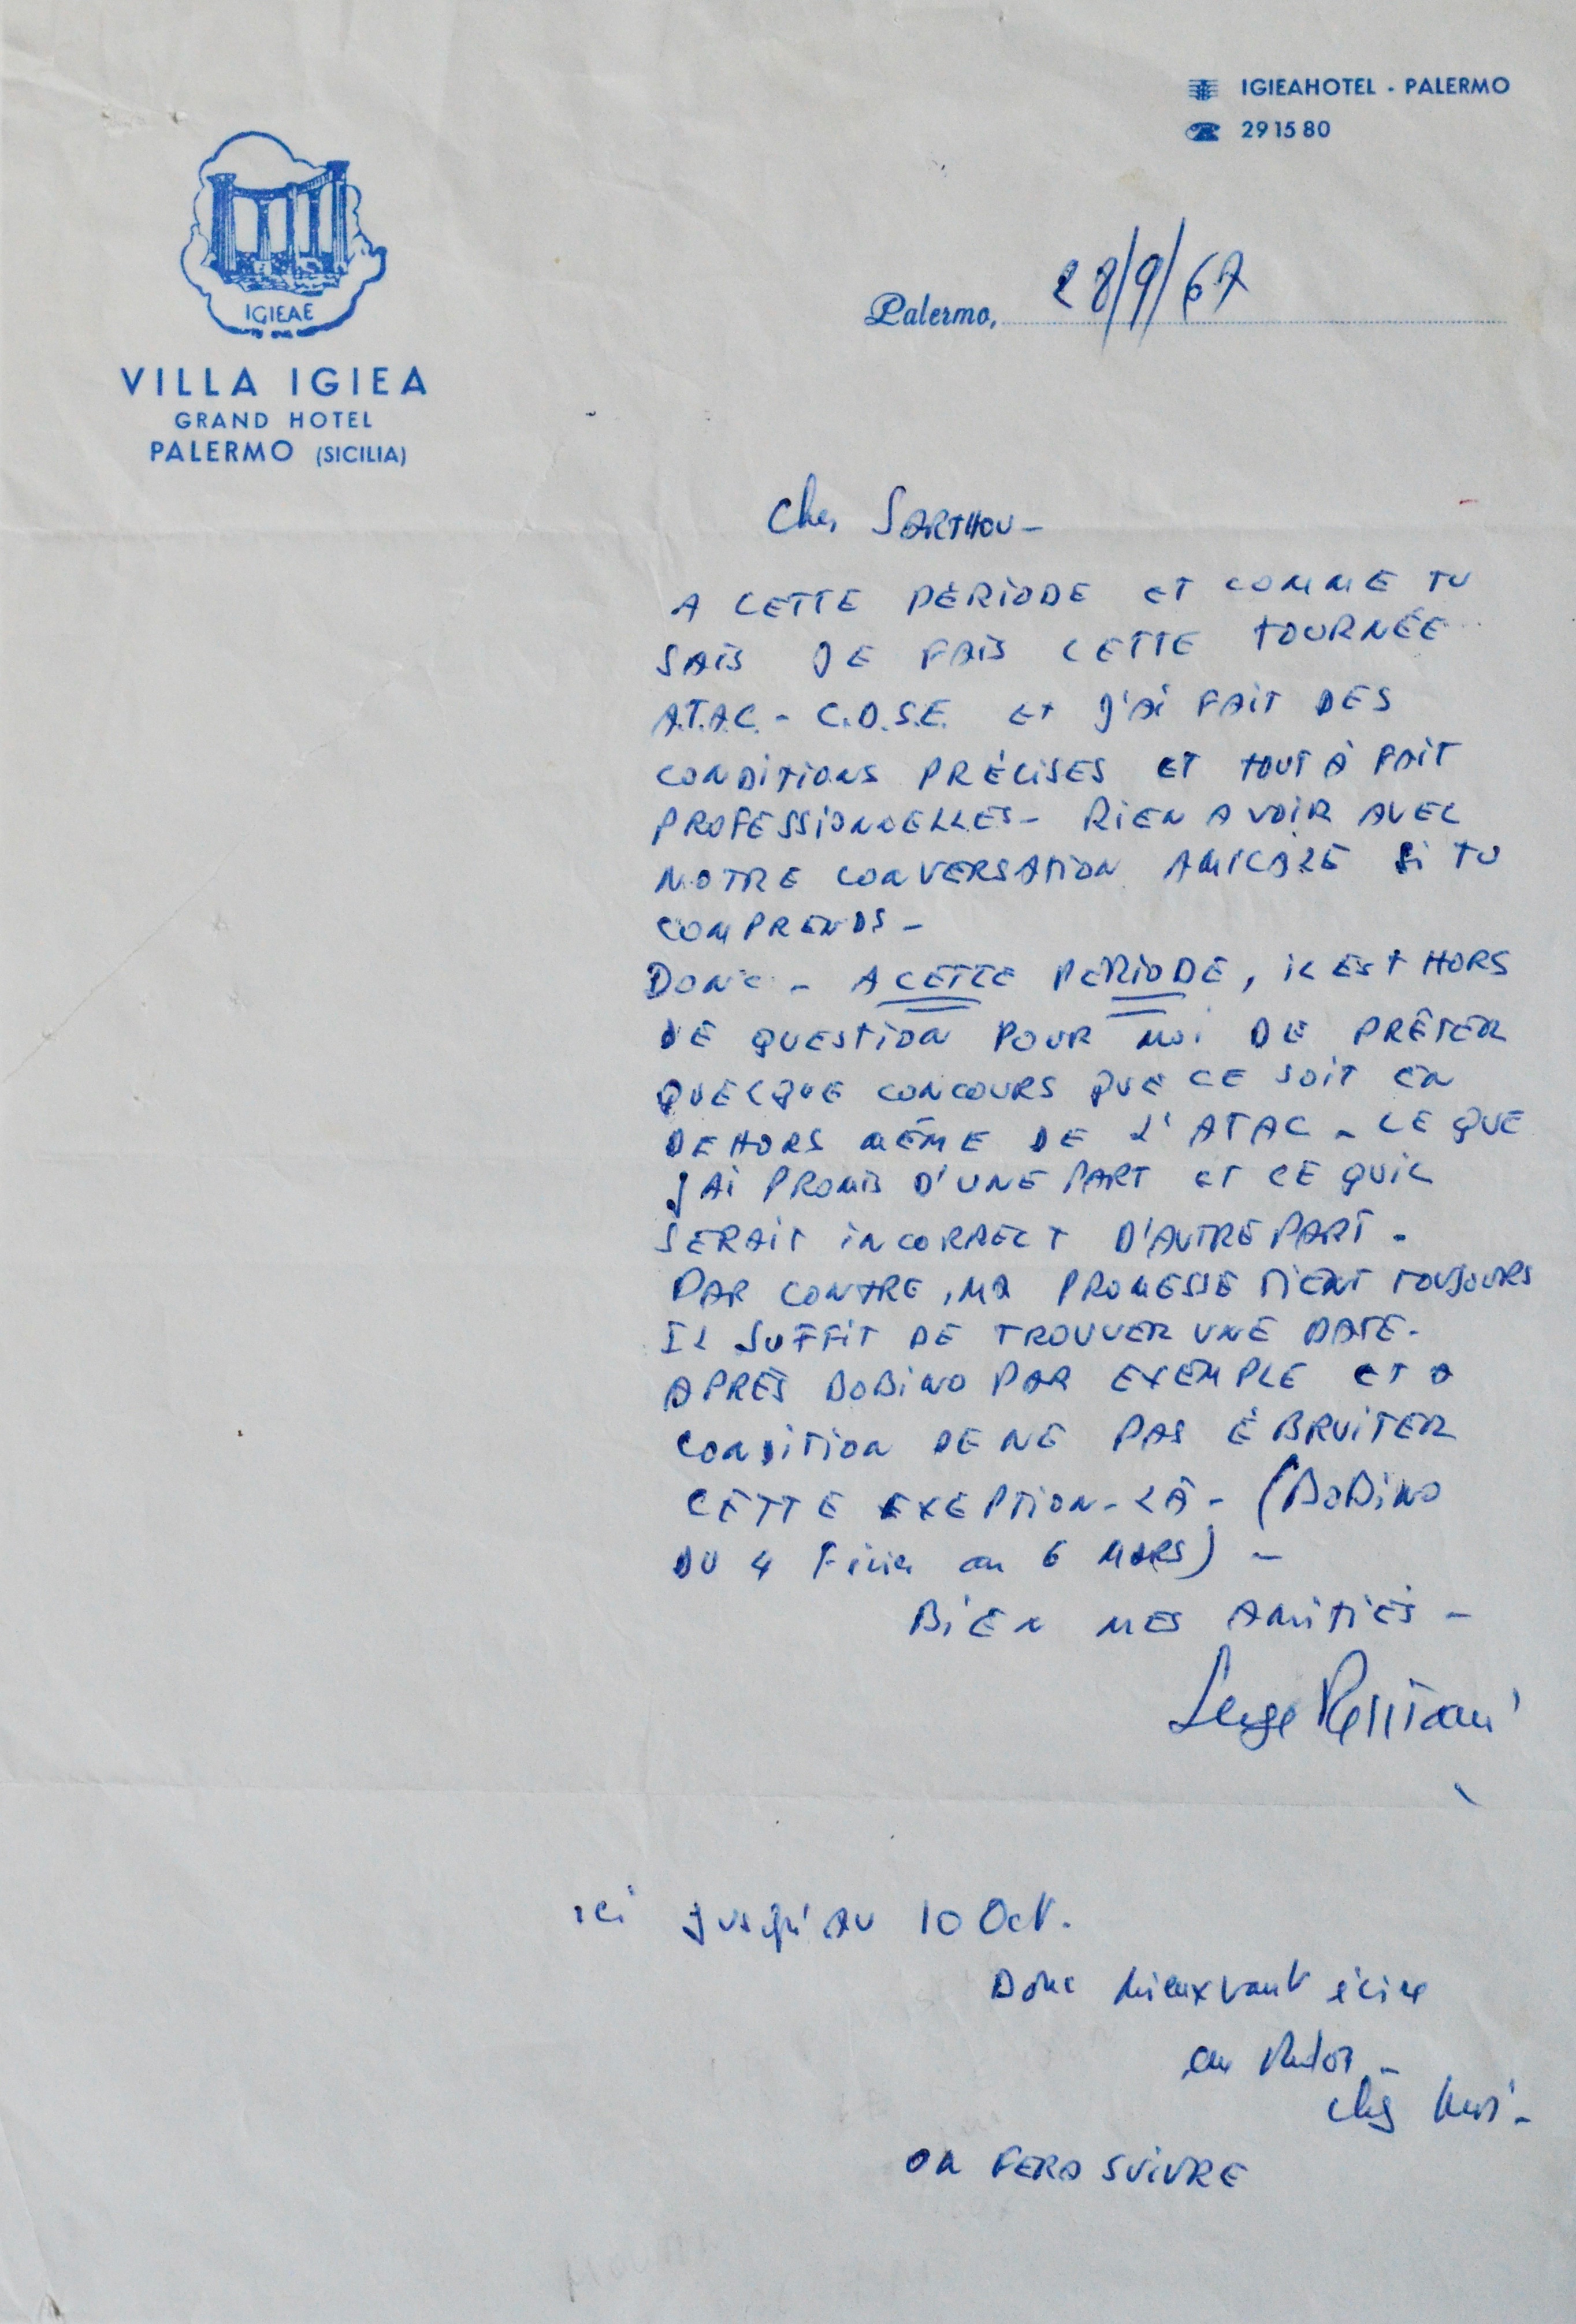 IGIEAHOTEL - PALERMO
29 15 80
IGIEAE
VILLA IGIEA
GRAND HOTEL
PALERMO (SICILIA)
Palermo, 28/9/67
Cher SARTHOU -
A CETTE PÉRIODE ET COMME TU
SAIS JE FAIS CETTE TOURNÉE
A.T.A.C. - C.O.S.E. ET J'AI FAIT DES
CONDITIONS PRÉCISES ET TOUT À FAIT
PROFESSIONNELLES - RIEN A VOIR AVEC
NOTRE CONVERSATION AMICALE SI TU
COMPRENDS -
DONC - A CETTE PERIODE, IL EST HORS
DE QUESTION POUR MOI DE PRÊTER
QUELQUE CONCOURS QUE CE SOIT EN
DEHORS MÊME DE L'ATAC - CE QUE
J'AI PROMIS D'UNE PART ET CE QUIL
SERAIT INCORRECT D'AUTRE PART -
PAR CONTRE, MA PROMESSE TIENT TOUJOURS
IL SUFFIT DE TROUVER UNE DATE -
APRÈS BOBINO PAR EXEMPLE ET A
CONDITION DE NE PAS ÉBRUITER
CETTE EXEPTION-LÀ - (BOBINO
DU 4 Février au 6 MARS) -
BIEN MES AMITIÉS -
Serge Reggiani
ici jusqu'AU 10 Oct.
Donc mieux vaut écrire
chez moi -
ON FERA SUIVRE